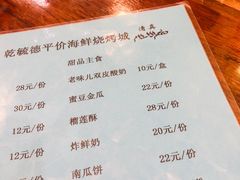 乾毓德平价海鲜烧烤城
清真
甜品主食
28元/份 老味儿双皮酸奶 10元/盒
30元/份 蜜豆金瓜 22元/份
12元/份 榴莲酥
12元/份 炸鲜奶 22元/份
南瓜饼 20元/份